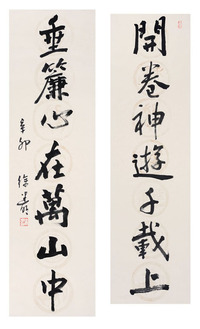 開卷神遊千載上
垂簾心在萬山中
辛卯 徐